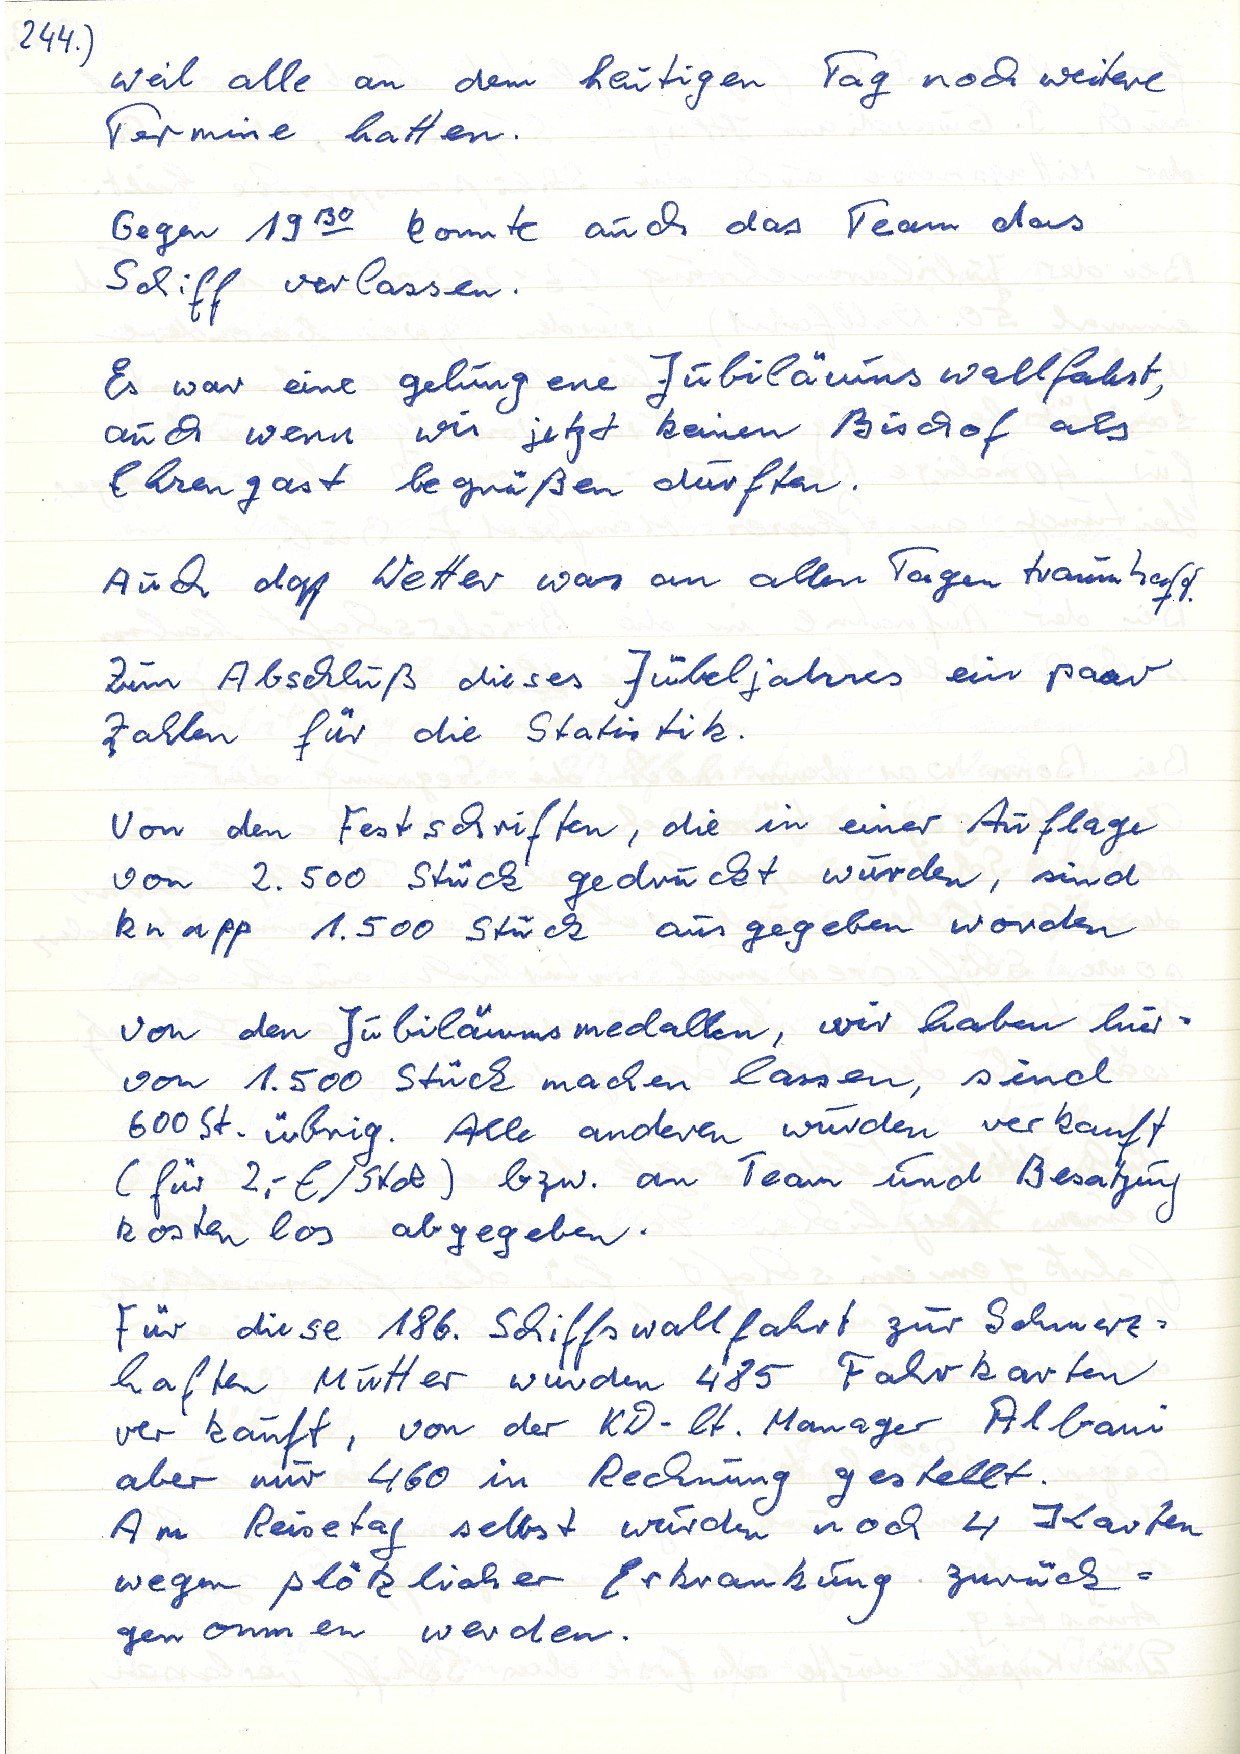 244.)
weil alle an dem heutigen Tag noch weitere
Termine hatten.
Gegen 19 30 konnte auch das Team das
Schiff verlassen.
Es war eine gelungene Jubiläumswallfahrt,
auch wenn wir jetzt keinen Bischof als
Ehrengast begrüßen durften.
Auch das Wetter war an allen Tagen traumhaft.
Zum Abschluß dieses Jubeljahres ein paar
Zahlen für die Statistik.
Von den Festschriften, die in einer Auflage
von 2.500 Stück gedruckt wurden, sind
knapp 1.500 Stück ausgegeben worden
Von den Jubiläumsmedallen, wir haben hier-
von 1.500 Stück machen lassen, sind
600 St. übrig. Alle anderen wurden verkauft
(für 2,- €/Stck) bzw. an Team und Besatzung
kostenlos abgegeben.
Für diese 186. Schiffswallfahrt zur Schmerz=
haften Mutter wurden 485 Fahrkarten
verkauft, von der KD - lt. Manager Albani
aber nur 460 in Rechnung gestellt.
Am Reisetag selbst wurden noch 4 Karten
wegen plötzlicher Erkrankung zurück=
genommen werden.